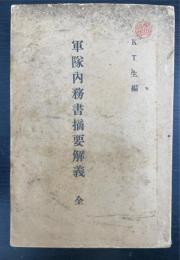 KT生編
軍隊內務書摘要解義 全